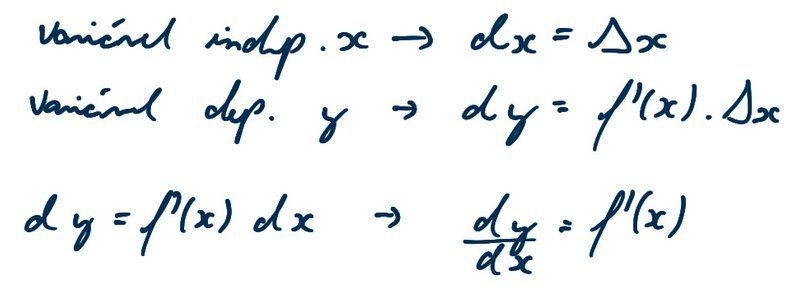 variável indep. x → dx = Δx
variável dep. y → dy = f'(x) . Δx
dy = f'(x) dx → dy/dx = f'(x)